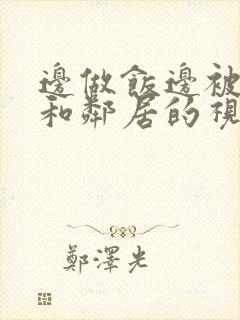 邊做飯邊被
和鄰居的視
鄭澤光